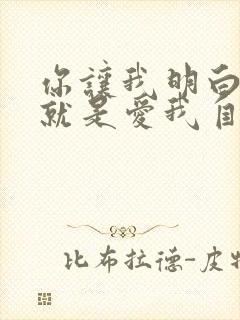 你讓我明白
就是愛我
比布拉德-皮